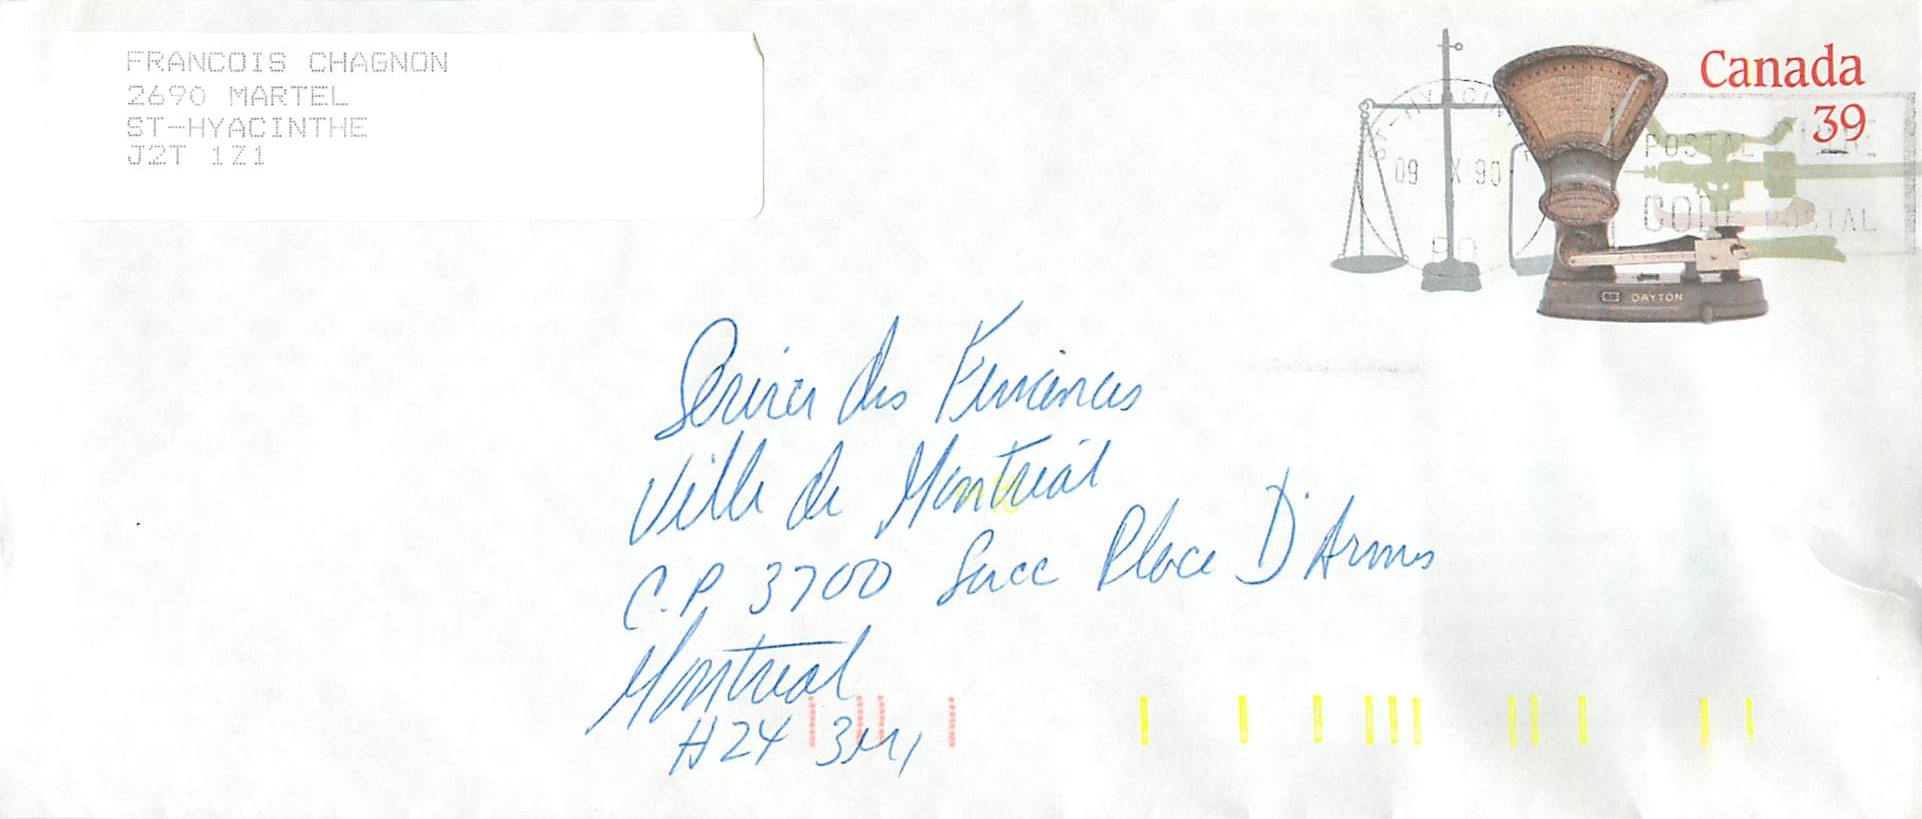 FRANCOIS CHAGNON
2690 MARTEL
ST-HYACINTHE
J2T 1Z1
Canada
39
ST-HYACIN
09 X 90
PQ
POSTAL CODE
CODE POSTAL
DAYTON
Service des Finances
Ville de Montréal
C.P. 3700 Succ Place D'Armes
Montreal
H2Y 3M1